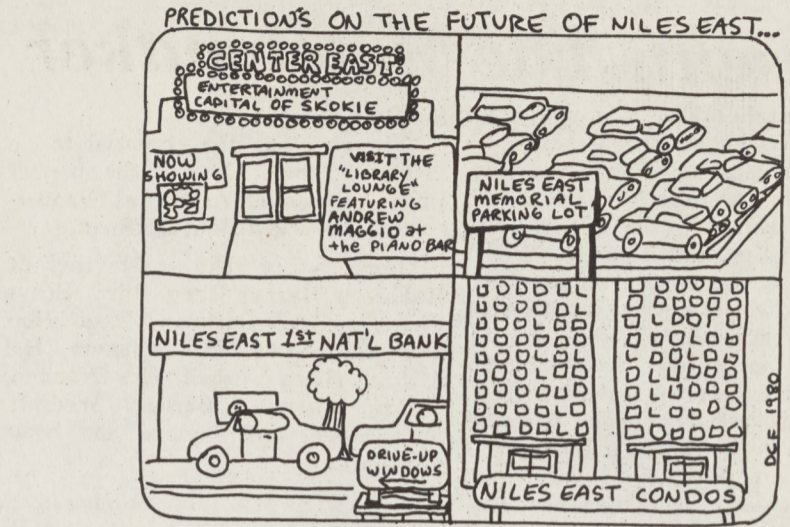 PREDICTIONS ON THE FUTURE OF NILES EAST...
CENTER EAST
ENTERTAINMENT
CAPITAL OF SKOKIE
NOW
SHOWING
VISIT THE
"LIBRARY
LOUNGE"
FEATURING
ANDREW
MAGGIO at
the PIANO BAR
NILES EAST
MEMORIAL
PARKING LOT
NILES EAST 1ST NAT'L BANK
DRIVE-UP
WINDOWS
NILES EAST CONDOS
DGF 1980